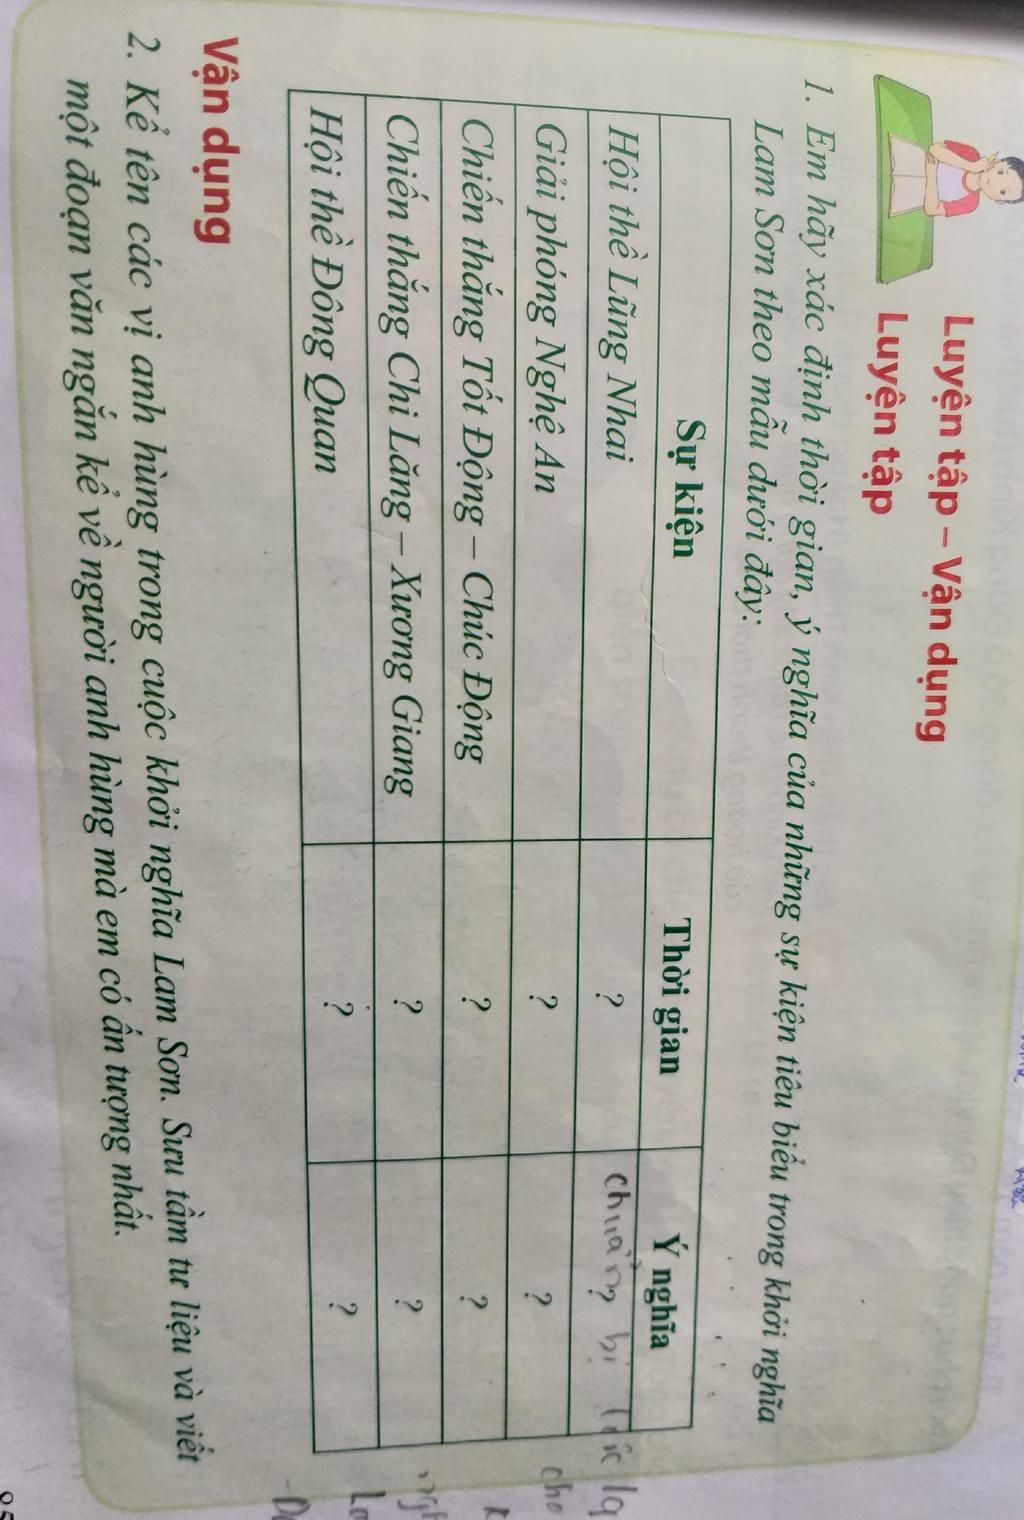 Luyện tập – Vận dụng
Luyện tập
1. Em hãy xác định thời gian, ý nghĩa của những sự kiện tiêu biểu trong khởi nghĩa
Lam Sơn theo mẫu dưới đây:
Sự kiện Thời gian Ý nghĩa
Hội thề Lũng Nhai ? ? chuẩn bị
Giải phóng Nghệ An ? ? cho
Chiến thắng Tốt Động – Chúc Động ? ?
Chiến thắng Chi Lăng – Xương Giang ? ?
Hội thề Đông Quan ? ?
Vận dụng
2. Kể tên các vị anh hùng trong cuộc khởi nghĩa Lam Sơn. Sưu tầm tư liệu và viết
một đoạn văn ngắn kể về người anh hùng mà em có ấn tượng nhất.